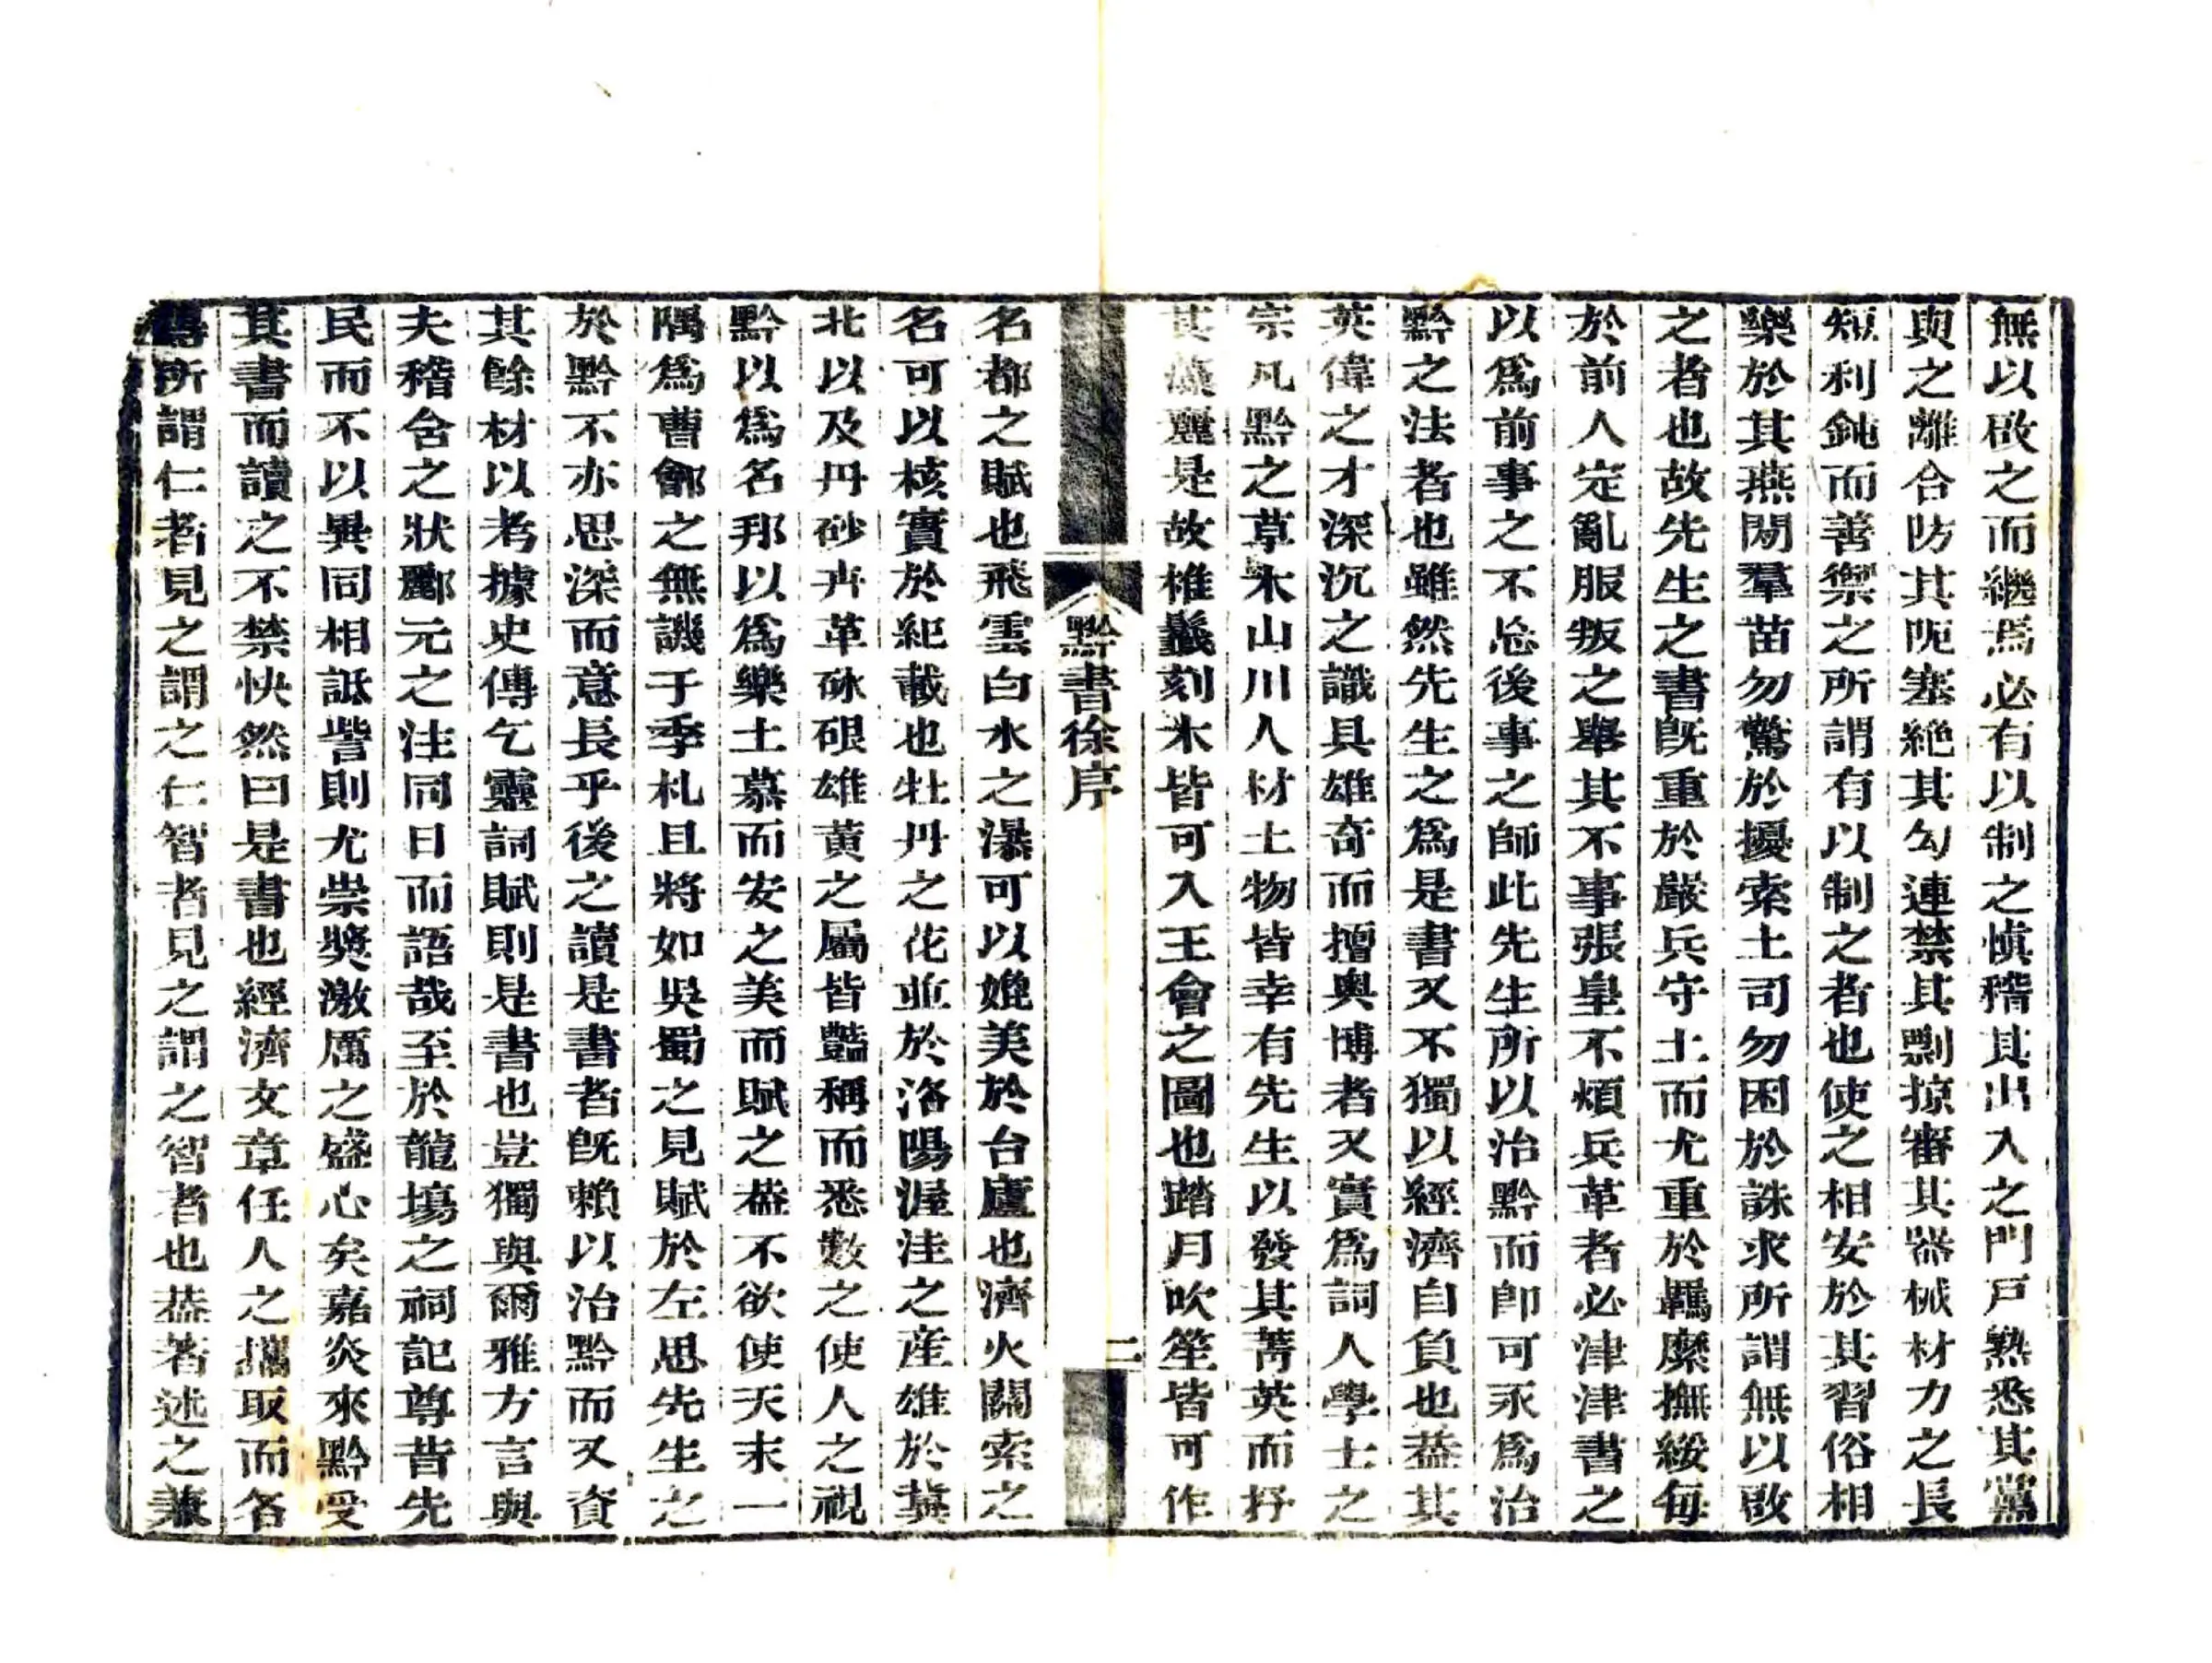 無以啟之而繼焉必有以制之慎稽其出入之門戸熟悉其黨
與之離合防其阨塞絶其勾連禁其剽掠審其器械材力之長
短利鈍而善禦之所謂有以制之者也使之相安於其習俗相
樂於其燕閒羣苗勿驚於擾索土司勿困於誅求所謂無以啟
之者也故先生之書旣重於嚴兵守土而尤重於羈縻撫綏每
於前人定亂服叛之舉其不事張皇不煩兵革者必津津書之
以爲前事之不忘後事之師此先生所以治黔而卽可永爲治
黔之法者也雖然先生之爲是書又不獨以經濟自負也葢其
英偉之才深沉之識具雄奇而擅奧博者又實爲詞人學士之
宗凡黔之草木山川人材土物皆幸有先生以發其菁英而抒
其藻麗是故椎髻刻木皆可入王會之圖也踏月吹笙皆可作
黔書徐序
二
名都之賦也飛雲白水之瀑可以媲美於台廬也濟火關索之
名可以核實於紀載也牡丹之花並於洛陽渥洼之産雄於冀
北以及丹砂卉革砅硍雄黄之屬皆豔稱而悉數之使人之視
黔以爲名邦以爲樂土慕而安之美而賦之葢不欲使天末一
隅爲曹鄶之無譏于季札且將如吳蜀之見賦於左思先生之
於黔不亦思深而意長乎後之讀是書者旣賴以治黔而又資
其餘材以考據史傳乞靈詞賦則是書也豈獨與爾雅方言與
夫稽含之狀酈元之注同日而語哉至於龍塲之祠記尊昔先
民而不以異同相詆訾則尤崇奬激厲之盛心矣嘉炎來黔受
其書而讀之不禁快然曰是書也經濟文章任人之攜取而各
傳所謂仁者見之謂之仁智者見之謂之智者也葢著述之兼